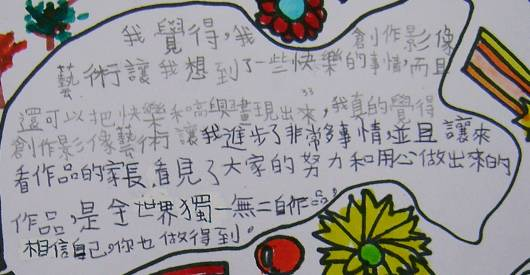 我覺得,我創作影像
藝術讓我想到了一些快樂的事情,而且
還可以把快樂和高興畫現出來,我真的覺得
創作影像藝術讓我進步了非常多事情,並且讓來
看作品的家長,看見了大家的努力和用心做出來的
作品,是全世界獨一無二自作品,
相信自己,你也做得到。